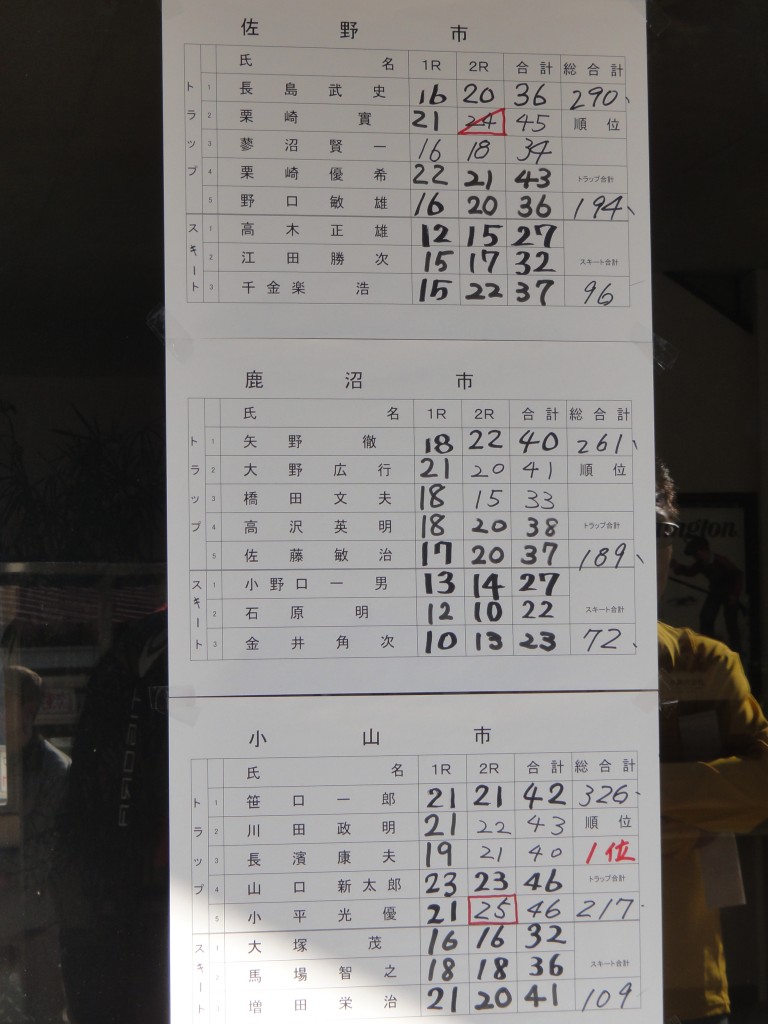 佐野市
氏 名 1R 2R 合計 総合計
トラップ
1 長島武史 16 20 36 290
2 栗崎實 21 24 45 順位
3 蓼沼賢一 16 18 34
4 栗崎優希 22 21 43 トラップ合計
5 野口敏雄 16 20 36 194
スキート
1 高木正雄 12 15 27
2 江田勝次 15 17 32 スキート合計
3 千金楽浩 15 22 37 96
鹿沼市
氏 名 1R 2R 合計 総合計
トラップ
1 矢野徹 18 22 40 261
2 大野広行 21 20 41 順位
3 橋田文夫 18 15 33
4 高沢英明 18 20 38 トラップ合計
5 佐藤敏治 17 20 37 189
スキート
1 小野口一男 13 14 27
2 石原明 12 10 22 スキート合計
3 金井角次 10 13 23 72
小山市
氏 名 1R 2R 合計 総合計
トラップ
1 笹口一郎 21 21 42 326
2 川田政明 21 22 43 順位
3 長濱康夫 19 21 40 1位
4 山口新太郎 23 23 46 トラップ合計
5 小平光優 21 25 46 217
スキート
1 大塚茂 16 16 32
2 馬場智之 18 18 36 スキート合計
3 増田栄治 21 20 41 109